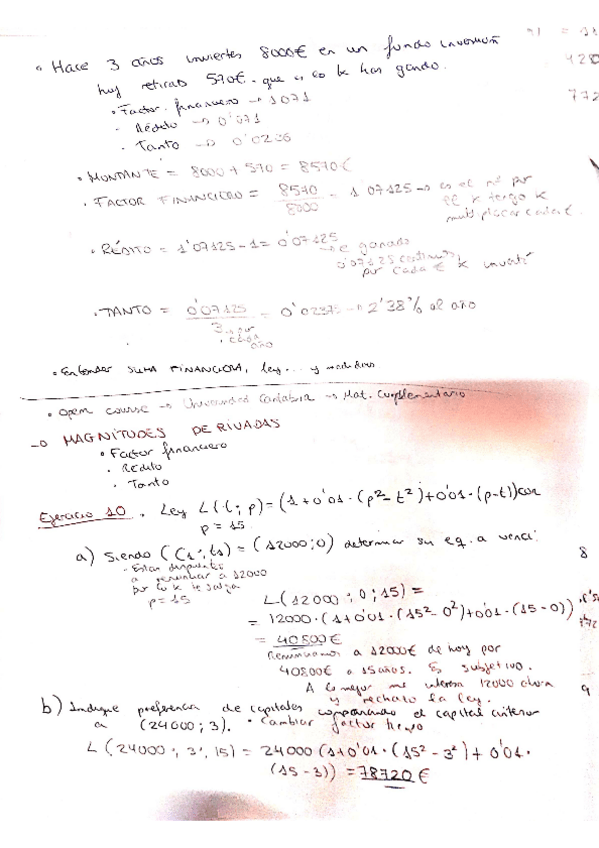 • Hace 3 años inviertes 8000€ en un fondo
hoy retiras 570€. que es lo k has ganado.
• Factor financiero → 1'071
• Rédito → 0'071
• Tanto → 0'0236
• MONTANTE = 8000 + 570 = 8570€
• FACTOR FINANCIERO = 8570 / 8000 = 1'07125 → es el nº por
el k tengo k
multiplicar cada €.
• RÉDITO = 1'07125 - 1 = 0'07125
→ e ganado
0'07125 centimos,
por cada € k invertí
• TANTO = 0'07125 / 3 = 0'02375 → 2'38% al año
año
• Entender SUMA FINANCIERA, ley... y
• Open course → Universidad Cantabria → Mat. Cuplementario
→ MAGNITUDES DERIVADAS
• Factor financiero
• Rédito
• Tanto
Ejercicio 10. Ley L(t; p) = (1 + 0'01 · (p² - t²) + 0'01 · (p-t)) con
p = 15.
a) Siendo (C1; t1) = (12000; 0) determinar su eq. a venci:
• Estas dispuesto
a renunciar a 12000
por lo k te salga
p = 15
L(12000; 0; 15) =
= 12000 · (1 + 0'01 · (15² - 0²) + 0'01 · (15 - 0))
= 40800€
Renunciamos a 12000€ de hoy por
40800€ a 15 años. Es subjetivo.
A lo mejor me interesa 12000 ahora
y rechazo la ley.
b) Indique preferencia de capitales comparando el capital anterior
a (24000; 3). • Cambiar factor tiempo
L(24000; 3; 15) = 24000 (1 + 0'01 · (15² - 3²) + 0'01 ·
(15 - 3)) = 78720€